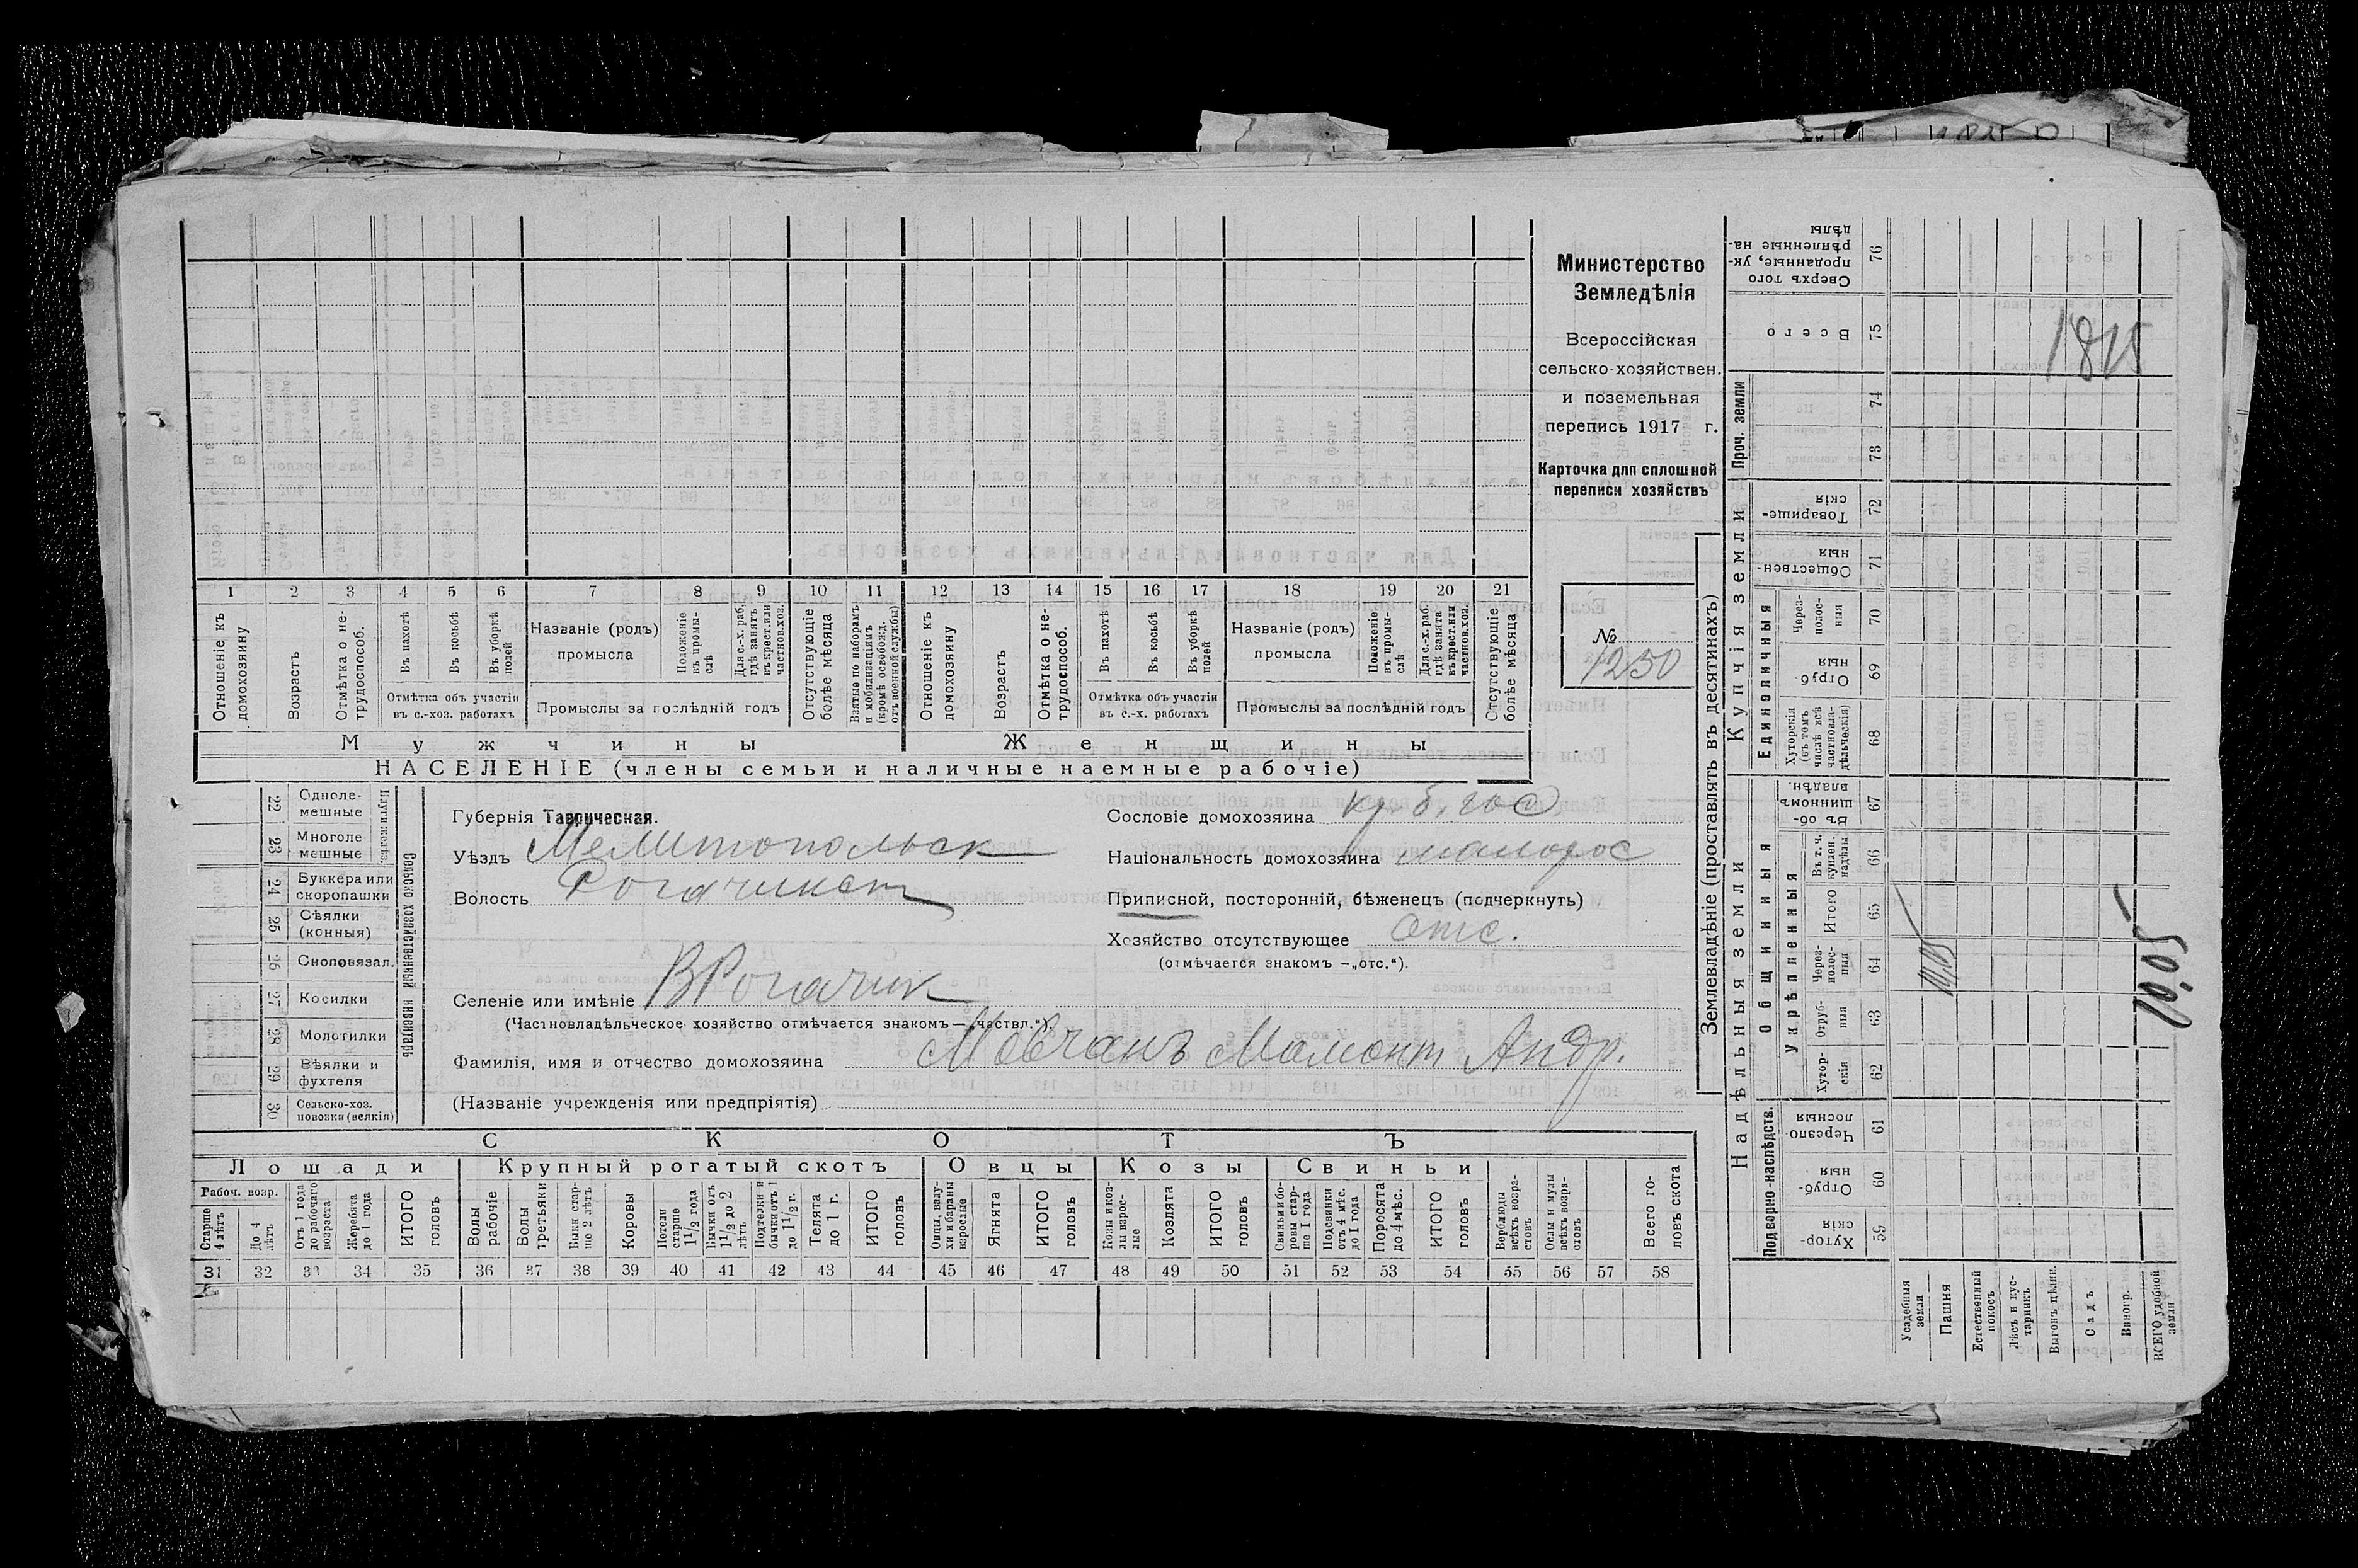 1 2 3 4 5 6 7 8 9 10 11 12 13 14 15 16 17 18 19 20 21
Отношеніе къ домохозяину
Возрасть
Отмѣтка о не-трудоспособ.
Въ пахотѣ
Въ косьбѣ
Въ уборкѣ полей
Отмѣтка объ участіи
въ с.-хоз. работахъ
Названіе (родъ)
промысла
Положеніе въ промы-слѣ
Для с.-х. раб. гдѣ занятъ въ крест. или частнов. хоз.
Промыслы за послѣдній годъ
Отсутствующіе болѣе мѣсяца
Взятые по наборамъ и мобилизаціямъ (кромѣ освобожд. отъ военной службы)
Отношеніе къ домохозяину
Возрасть
Отмѣтка о не-трудоспособ.
Въ пахотѣ
Въ косьбѣ
Въ уборкѣ полей
Отмѣтка объ участіи
въ с.-х. работахъ
Названіе (родъ)
промысла
Положеніе въ промы-слѣ
Для с.-х. раб. гдѣ занята въ крест. или частнов. хоз.
Промыслы за послѣдній годъ
Отсутствующіе болѣе мѣсяца
Мужчины Женщины
НАСЕЛЕНІЕ (члены семьи и наличные наемные рабочіе)
Министерство
Земледѣлія
Всероссійская
сельско-хозяйствен.
и поземельная
перепись 1917 г.
Карточка для сплошной
переписи хозяйствъ
№
1250
22 Одноле-мешные
23 Многоле мешные
24 Буккера или скоропашки
25 Сѣялки (конныя)
26 Сноповязал.
27 Косилки
28 Молотилки
29 Вѣялки и фухтеля
30 Сельско-хоз. повозки (всякія)
Сельско хозяйственный инвентарь
Губернія Таврическая.
Уѣздъ Мелитопольск
Волость Рогачикск
Селеніе или имѣніе ВРогачик
(Частновладѣльческое хозяйство отмѣчается знакомъ—„частвл.“).
Фамилія, имя и отчество домохозяина Мовчанъ Мамонт Андр.
(Названіе учрежденія или предпріятія)
Сословіе домохозяина
Національность домохозяина малорос
Приписной, посторонній, бѣженецъ (подчеркнуть)
Хозяйство отсутствующее отс.
(отмѣчается знакомъ —„отс.“).
СКОТЪ
Лошади Крупный рогатый скотъ Овцы Козы Свиньи
Рабоч. возр.
Старше 4 лѣтъ
До 4 лѣтъ
Отъ 1 года до рабочаго возраста
Жеребята до 1 года
ИТОГО головъ
Волы рабочіе
Волы третьяки
Быки стар-ше 2 лѣтъ
Коровы
Нетели старше 1 1/2 года
Бычки отъ 1 1/2 до 2 лѣтъ
Подтелки и бычки отъ 1 до 1 1/2 г.
Телята до 1 г.
ИТОГО головъ
Овцы, валу-хи и бараны взрослые
Ягнята
ИТОГО головъ
Козы и коз-лы взрос-лые
Козлята
ИТОГО головъ
Свиньи и бо-ровы стар-ше 1 года
Подсвинки отъ 4 мѣс. до 1 года
Поросята до 4 мѣс.
ИТОГО головъ
Верблюды всѣхъ возра-стовъ
Ослы и мулы всѣхъ возра-стовъ
Всего го-ловъ скота
31 32 33 34 35 36 37 38 39 40 41 42 43 44 45 46 47 48 49 50 51 52 53 54 55 56 57 58
Землевладѣніе (проставлять въ десятинахъ)
Купчія земли
Надѣльныя земли
Сверхъ того проданные, ук-рѣпленные на-дѣлы 76
Всего 75
Проч. земли 74 73
Товарище-скія 72
Обществен-ныя 71
Единоличныя
Через-полос-ныя 70
Отруб-ныя 69
Хуторскія (въ томъ числѣ всѣ частновла-дѣльческія) 68
Общинныя
Въ об-щинномъ владѣн. 67
Укрѣпленныя
Въ т. ч. куплен. надѣлы 66
Итого 65
Через-полос-ныя 64
Отруб-ныя 63
Хутор-скія 62
Подворно-наслѣдств.
Черезпо-лосныя 61
Отруб-ныя 60
Хутор-скія 59
Усадебныя земли
Пашня
Естественный покосъ
Лѣсъ и кус-тарникъ
Выгонъ цѣлин.
Садъ
Виногр.
ВСЕГО удобной земли
1815